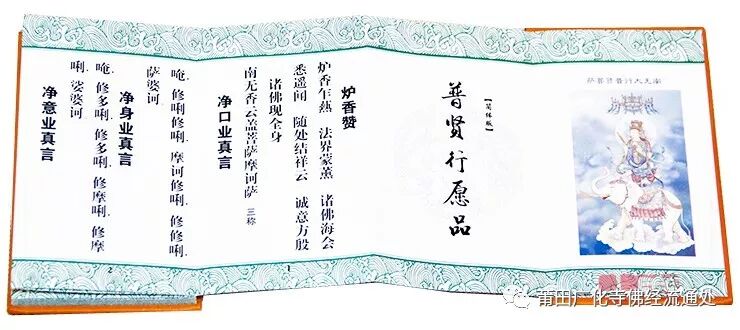 南无大行普贤菩萨
【简体版】
普贤行愿品
炉香赞
炉香乍爇　法界蒙薰　诸佛海会
悉遥闻　随处结祥云　诚意方殷
诸佛现全身
南无香云盖菩萨摩诃萨 三称
净口业真言
1
唵. 修唎修唎. 摩诃修唎. 修修唎.
萨婆诃
净身业真言
唵. 修多唎. 修多唎. 修摩唎. 修摩
唎. 娑婆诃
净意业真言
2
莆田广化寺佛经流通处